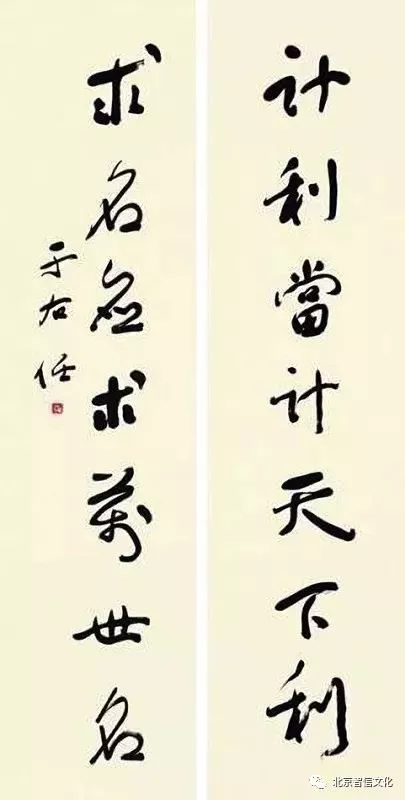 計利當計天下利
求名應求萬世名
于右任
北京睿信文化